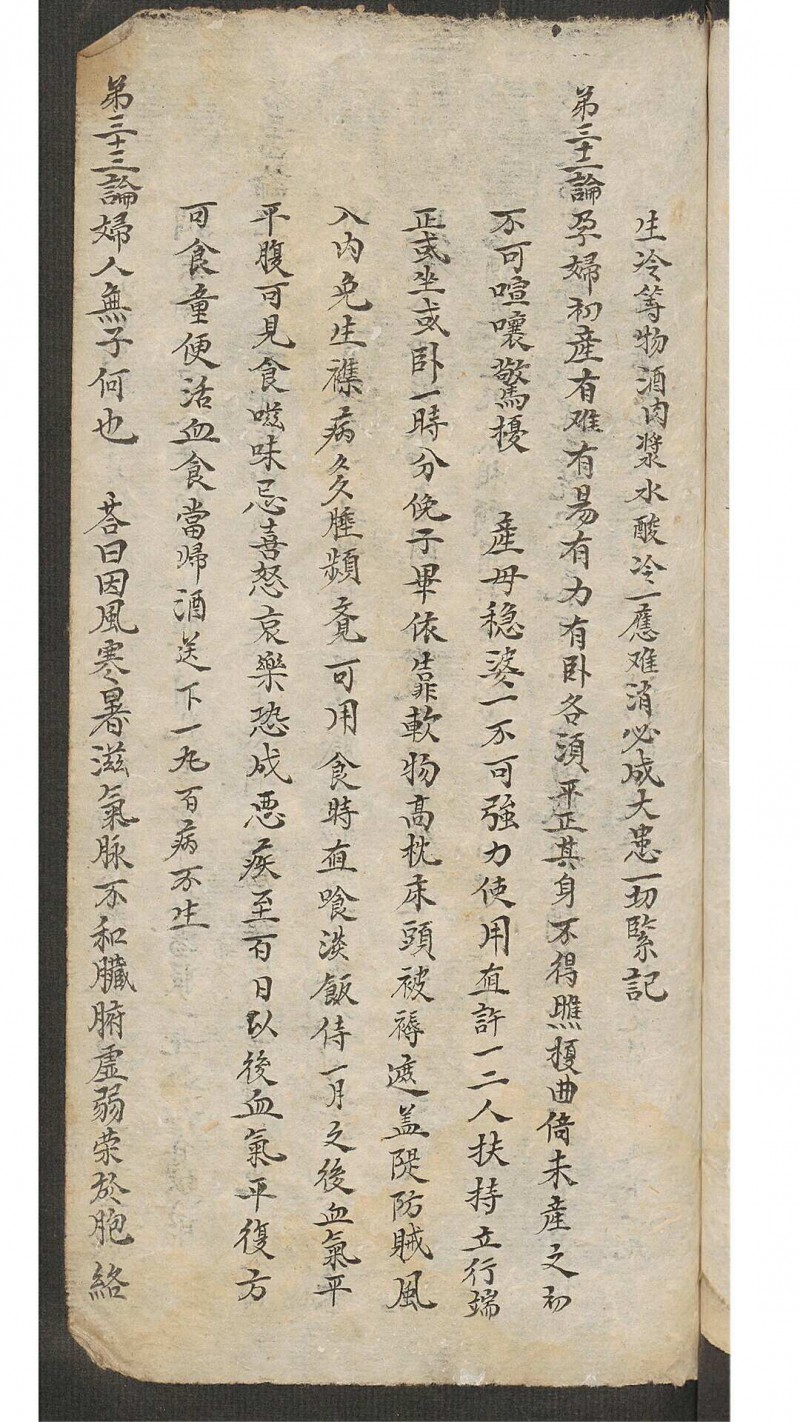 生冷等物酒肉漿水酸冷一應难消必成大患一切緊記
弟三十二論孕婦初產有难有易有力有卧各須平正其身不得曲倚未產之初
不可喧嚷驚擾　產母穏婆一不可強力使用宜許一二人扶持立行端
正或坐或卧一時分俛子畢依靠軟物高枕床頭被褥遮盖隄防賊風
入内免生襍病久頻可用食時宜喰淡飯侍一月之後血氣平
平腹可見食嗞味忌喜怒哀樂恐成悪疾至百日以後血氣平復方
可食童便活血食當帰酒送下一九百病不生
弟三十三論婦人無子何也　荅曰因風寒暑滋氣脉不和臟腑虚弱荣於胞絡